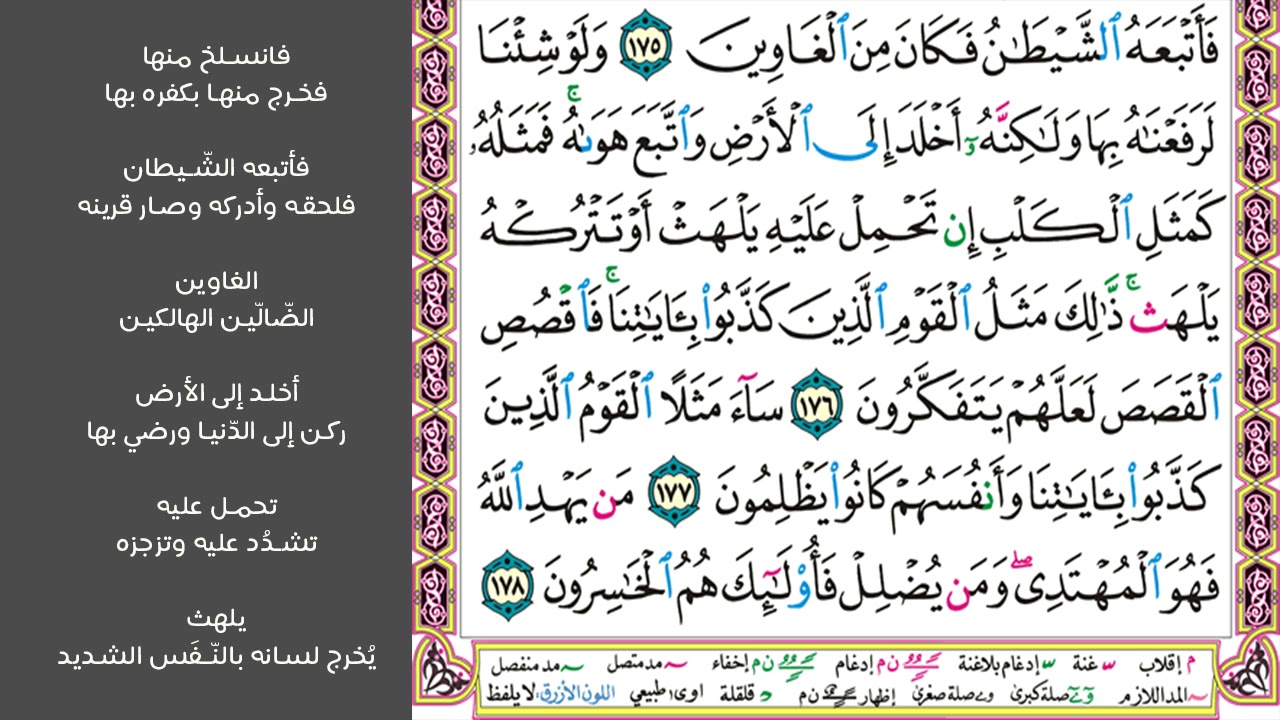 فَأَتۡبَعَهُ ٱلشَّيۡطَٰنُ فَكَانَ مِنَ ٱلۡغَاوِينَ ١٧٥ وَلَوۡ شِئۡنَا
لَرَفَعۡنَٰهُ بِهَا وَلَٰكِنَّهُۥٓ أَخۡلَدَ إِلَى ٱلۡأَرۡضِ وَٱتَّبَعَ هَوَىٰهُۚ فَمَثَلُهُۥ
كَمَثَلِ ٱلۡكَلۡبِ إِن تَحۡمِلۡ عَلَيۡهِ يَلۡهَثۡ أَوۡ تَتۡرُكۡهُ
يَلۡهَثۚ ذَّٰلِكَ مَثَلُ ٱلۡقَوۡمِ ٱلَّذِينَ كَذَّبُواْ بِـَٔايَٰتِنَاۚ فَٱقۡصُصِ
ٱلۡقَصَصَ لَعَلَّهُمۡ يَتَفَكَّرُونَ ١٧٦ سَآءَ مَثَلًا ٱلۡقَوۡمُ ٱلَّذِينَ
كَذَّبُواْ بِـَٔايَٰتِنَا وَأَنفُسَهُمۡ كَانُواْ يَظۡلِمُونَ ١٧٧ مَن يَهۡدِ ٱللَّهُ
فَهُوَ ٱلۡمُهۡتَدِيۖ وَمَن يُضۡلِلۡ فَأُوْلَٰٓئِكَ هُمُ ٱلۡخَٰسِرُونَ ١٧٨
م إقلاب س غنة س إدغام بلاغنة ن م إدغام ن م إخفاء مد متصل مد منفصل
المد اللازم صلة كبرى و ے صلة صغرى إظهار ن م د قلقلة اوى طبيعي اللون الأزرق: لا يلفظ
فانسلخ منها
فخرج منها بكفره بها
فأتبعه الشّيطان
فلحقه وأدركه وصار قرينه
الغاوين
الضّالّين الهالكين
أخلد إلى الأرض
ركن إلى الدّنيا ورضي بها
تحمل عليه
تشدُد عليه وتزجزه
يلهث
يُخرج لسانه بالنّفَس الشديد